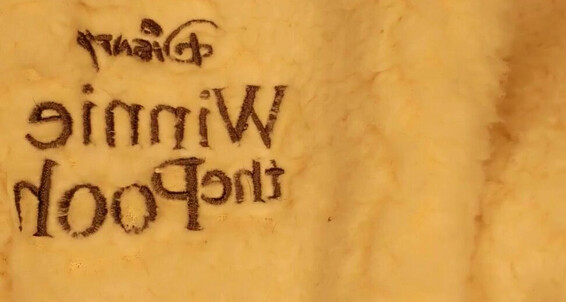 Disney
Winnie
the Pooh